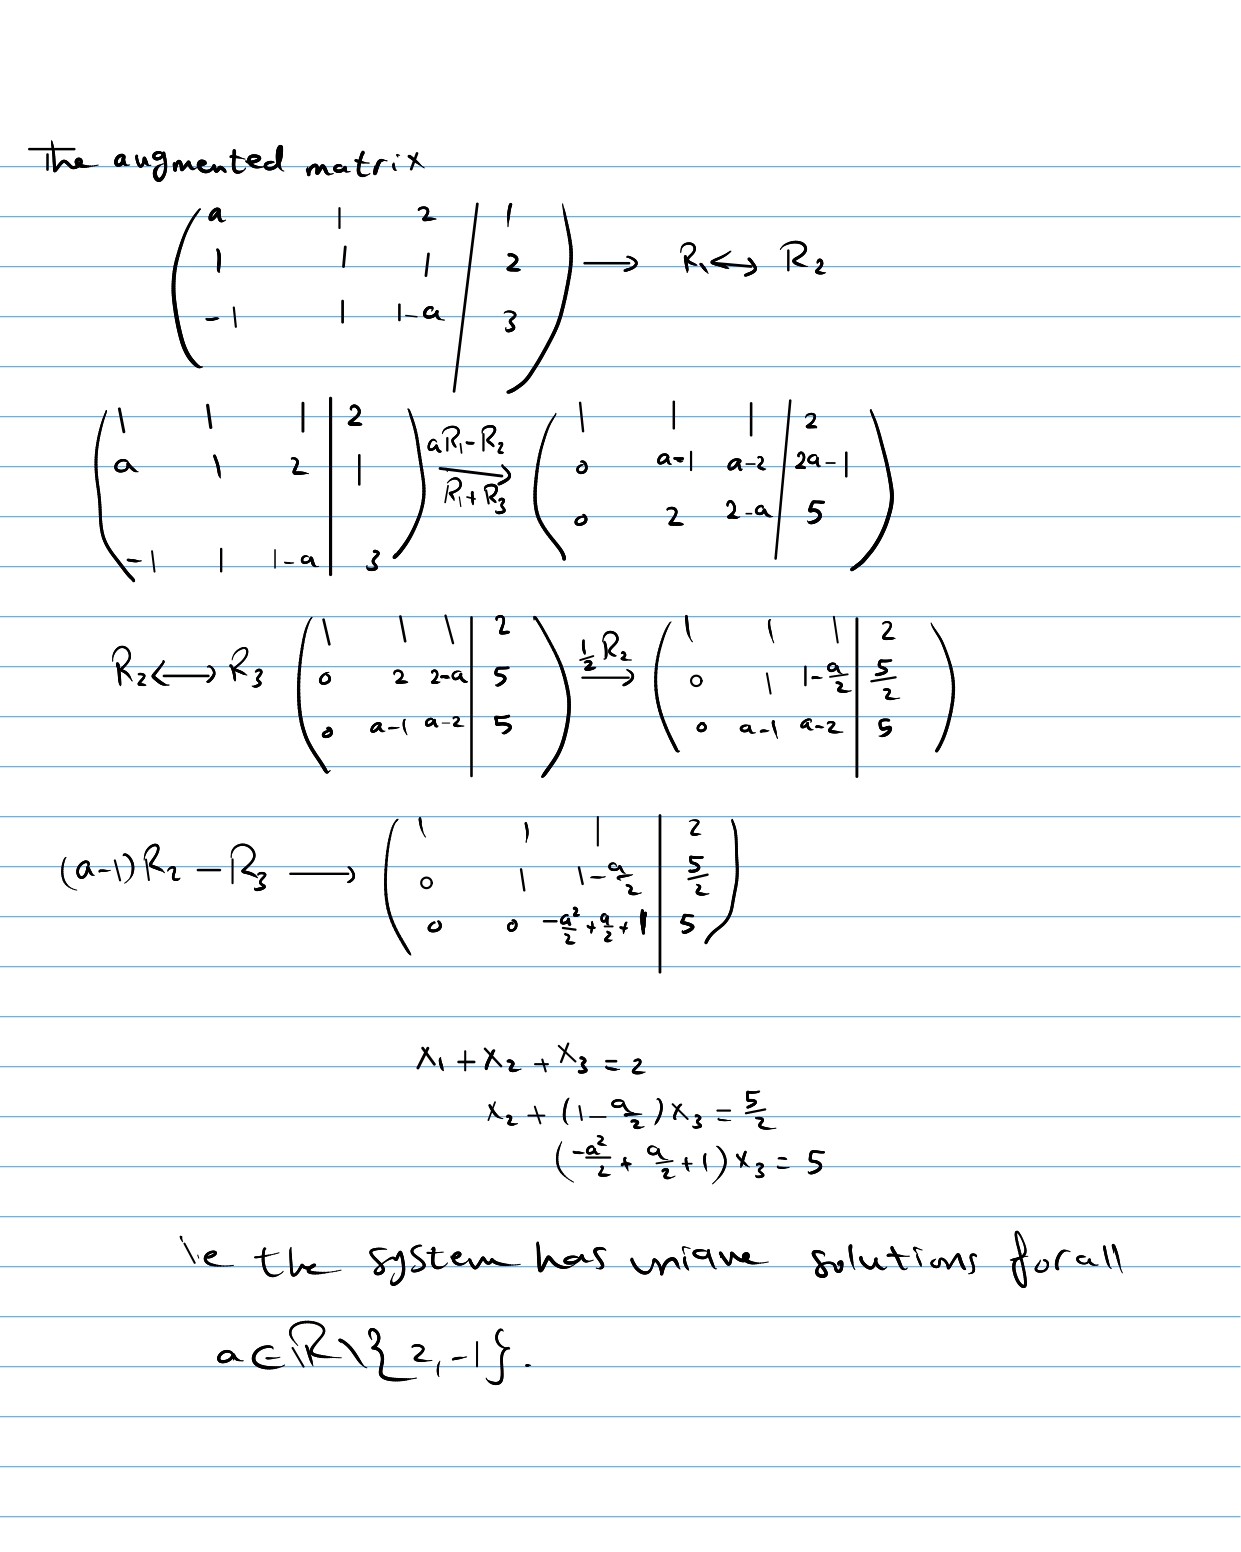 The augmented matrix
a 1 2 | 1
1 1 1 | 2 ⟶ R₁ ↔ R₂
-1 1 1-a | 3
1 1 1 | 2
a 1 2 | 1
-1 1 1-a | 3
aR₁-R₂
R₁+R₃
1 1 1 | 2
0 a-1 a-2 | 2a-1
0 2 2-a | 5
R₂ ⟷ R₃
1 1 1 | 2
0 2 2-a | 5
0 a-1 a-2 | 5
½R₂ ⟶
1 1 1 | 2
0 1 1-a/2 | 5/2
0 a-1 a-2 | 5
(a-1)R₂ - R₃ ⟶
1 1 1 | 2
0 1 1-a/2 | 5/2
0 0 -a²/2+a/2+1 | 5
x₁ + x₂ + x₃ = 2
x₂ + (1-a/2)x₃ = 5/2
(-a²/2 + a/2 + 1)x₃ = 5
ie the system has unique solutions for all
a∈ℝ\{2,-1}.